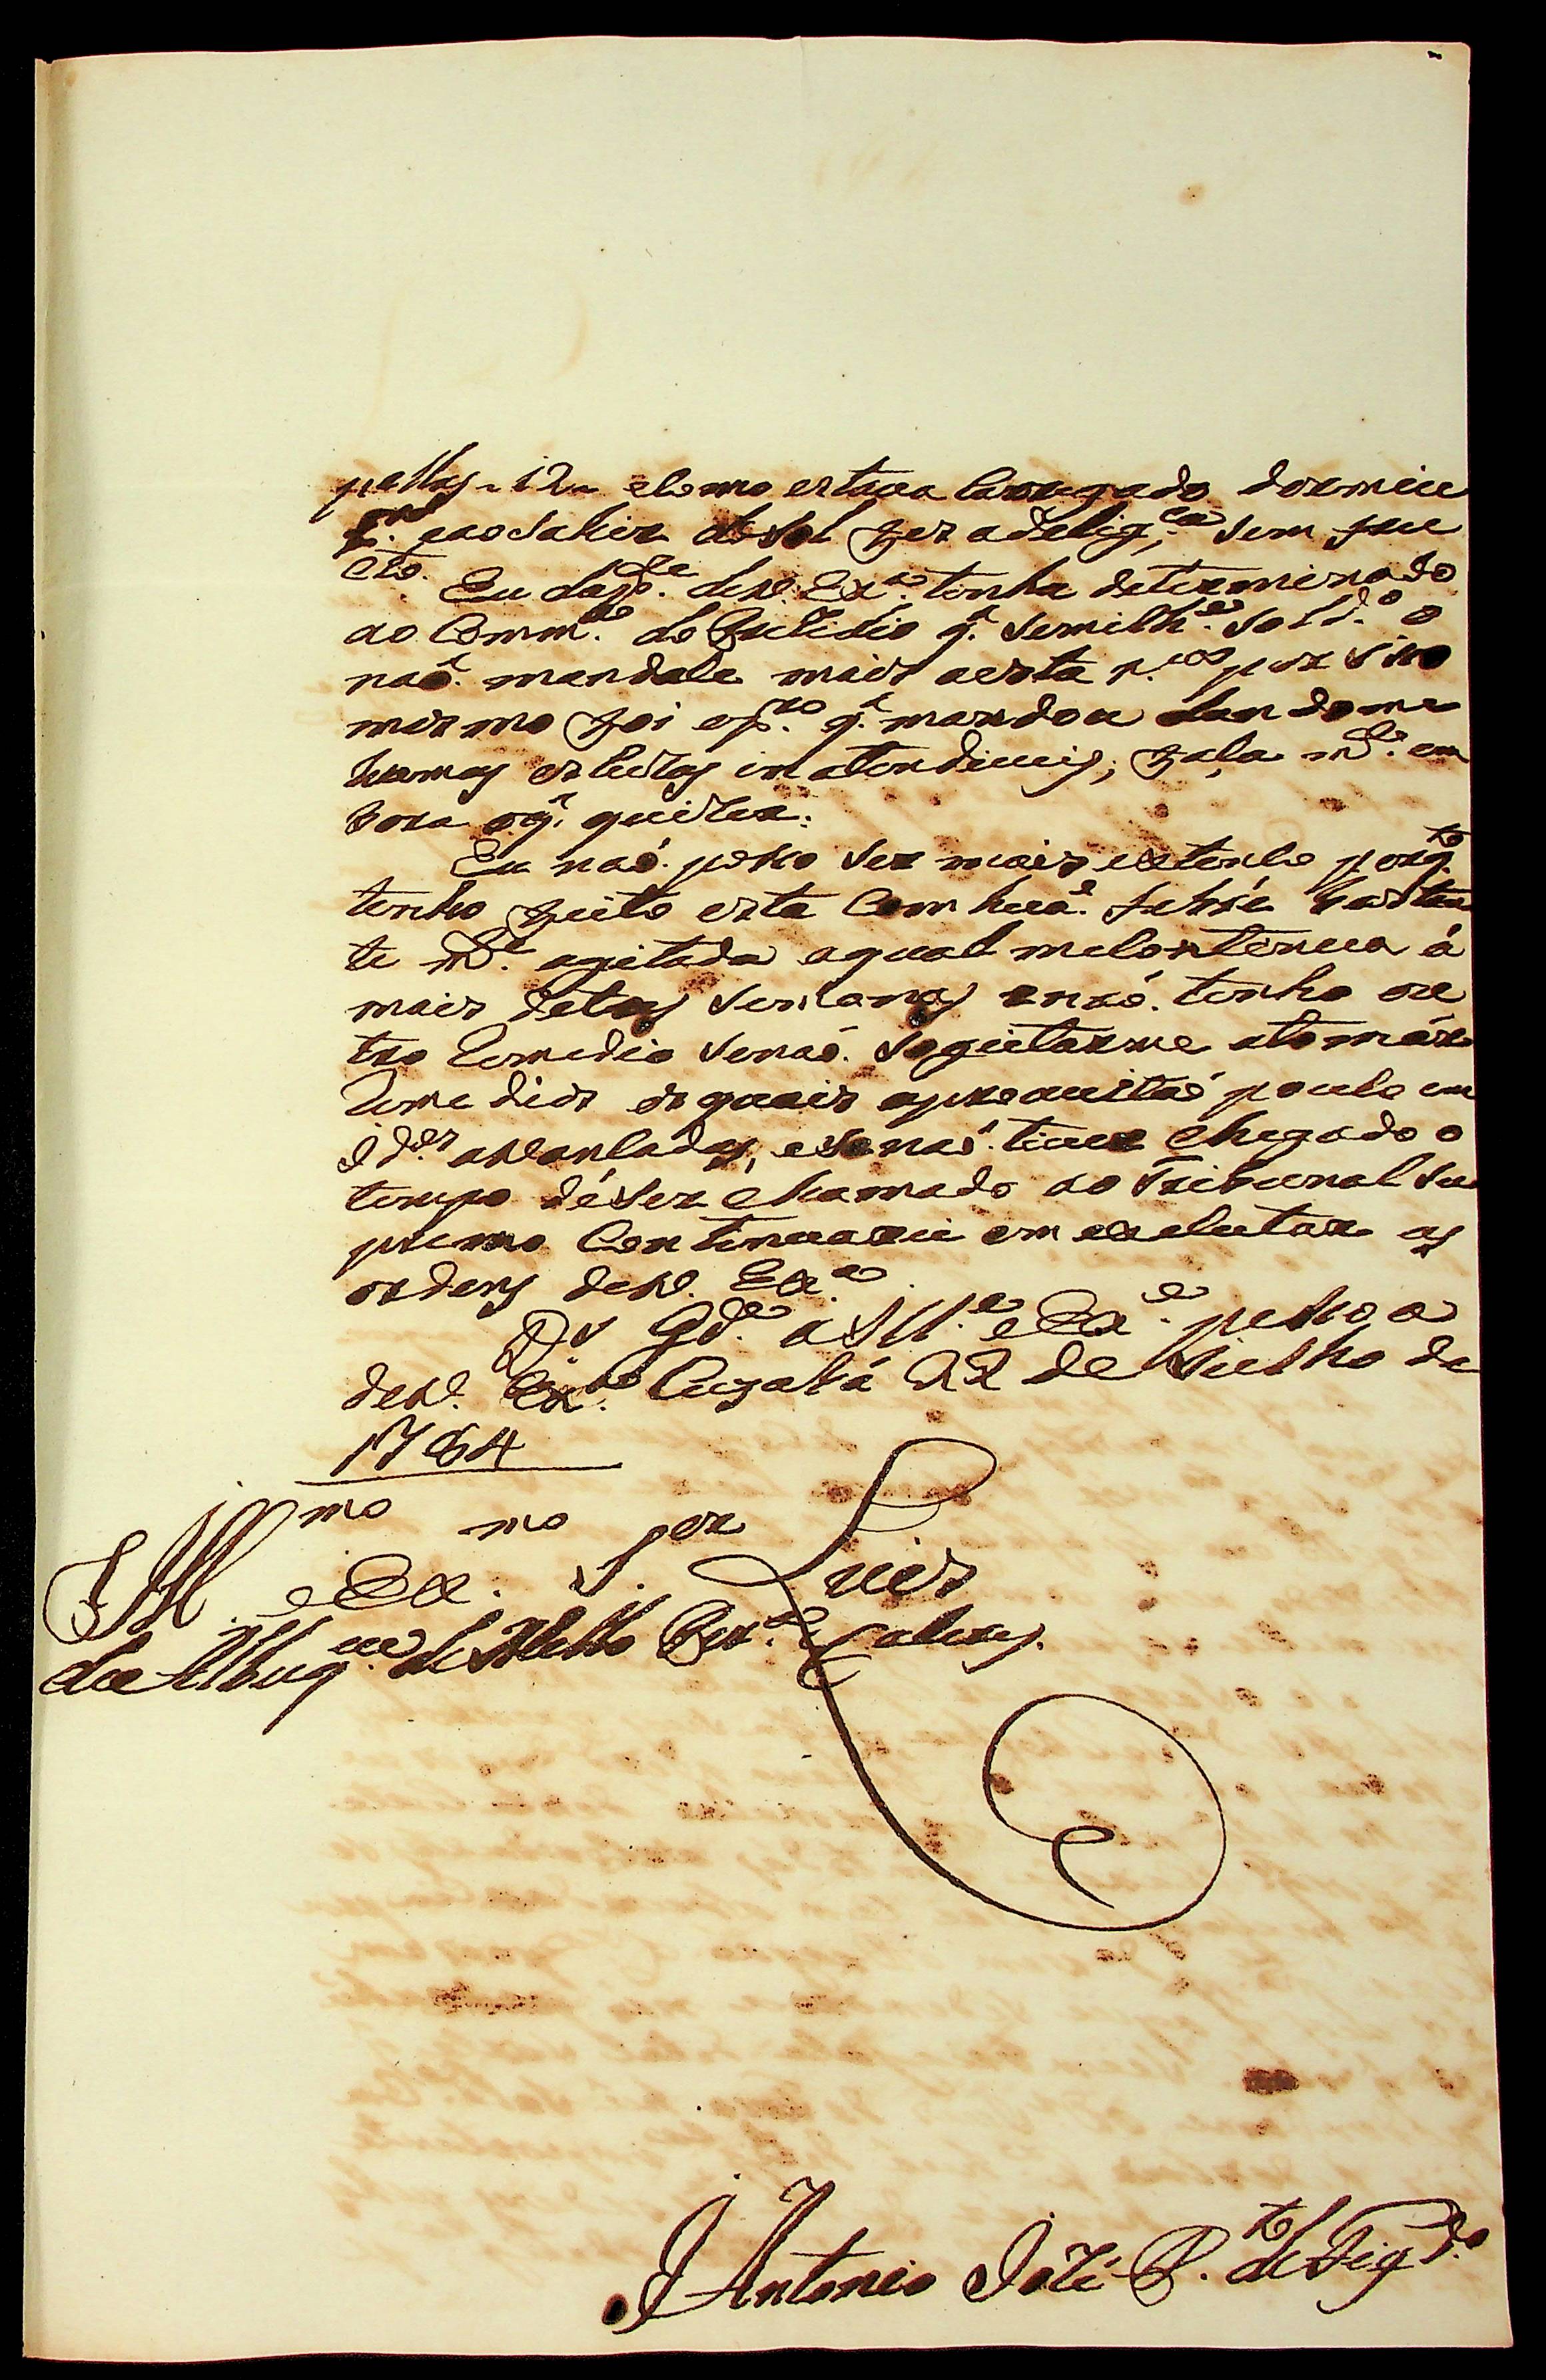 pellas 12 e como estava carregado dormiu
e ao sahir do Sol fez a delig.ca sem fru
cto. Eu da p.te de V. Ex.a tinha determinado
ao Comm.e do Prezidio q.' semilh.e sold.o o
naõ mandace mais a esta por isso
mesmo foi o pr.o q.' mandou dandome
humas escuzas inatendiveis; faça m.ce em
bora o q.' quizer.
Eu naõ posso ser mais extenço porq.to
tenho feito esta com huã febre bastan
te m.to agitada a qual me continua á
mais de tres semanas e naõ tenho ou
tro remedio senaõ sogeitarme a tomár
remedios os quais aproveitaõ pouco em
id.es avançadas, e se naõ tiver chegado o
tempo de ser chamado ao Tribunal Su
premo continuarei em executar as
ordens de V. Ex.a
D.s G.de a Ill.e e Ex.e pessoa
de V. Ex.a Cuyabá 22 de Julho de
1784
Ill.mo e Ex.mo S.or Luis
de Albuq.e de Mello Per.a e Caceres.
Antonio José P.to de Fig.do